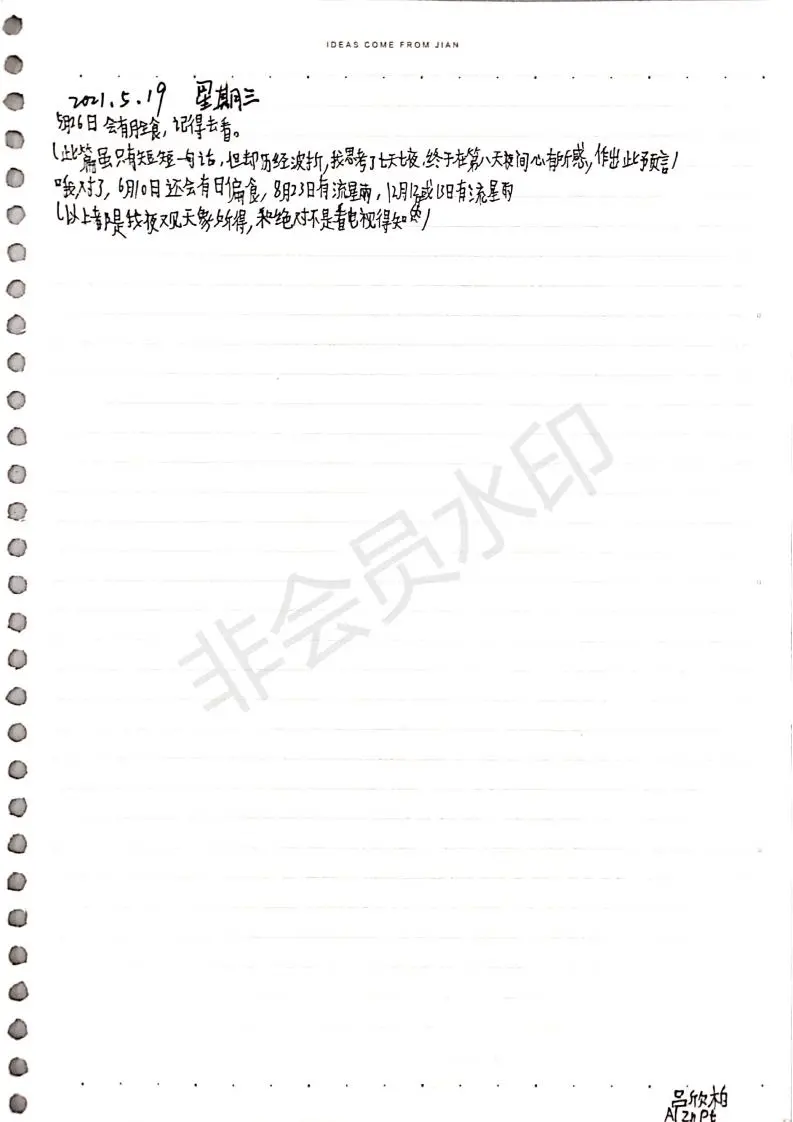 IDEAS COME FROM JIAN
2021.5.19 星期三
5月26日会有月全食，记得去看。
(此篇虽只有短短一句话，但却历经波折，我思考了七天七夜，终于在第八天夜间心有所感，作出此预言)
哦对了，6月10日还会有日偏食，8月23日有流星雨，12月12或13日有流星雨
(以上都是我夜观天象所得，和绝对不是看电视得知的)
非会员水印
吕欣柏
AlZnPt